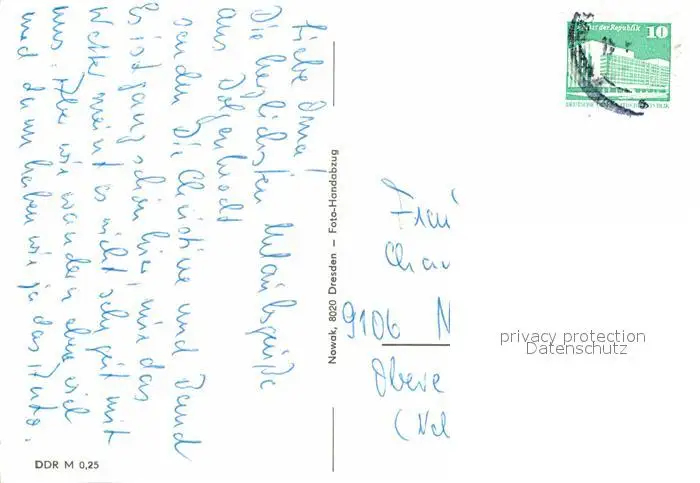 Liebe Oma!
Die herzlichsten Urlaubsgrüße
aus
senden Dir Christine und Bernd
Es ist ganz schön hier, nur das
Wetter meint es nicht sehr gut mit
uns. Aber wir wandern eben viel
und dann haben wir ja das Auto.
DDR M 0,25
Nowak, 8020 Dresden – Foto-Handabzug
der Republik 10
DEUTSCHE DEMOKRATISCHE REPUBLIK
Frau
Char
9106 N
Obere
privacy protection
Datenschutz